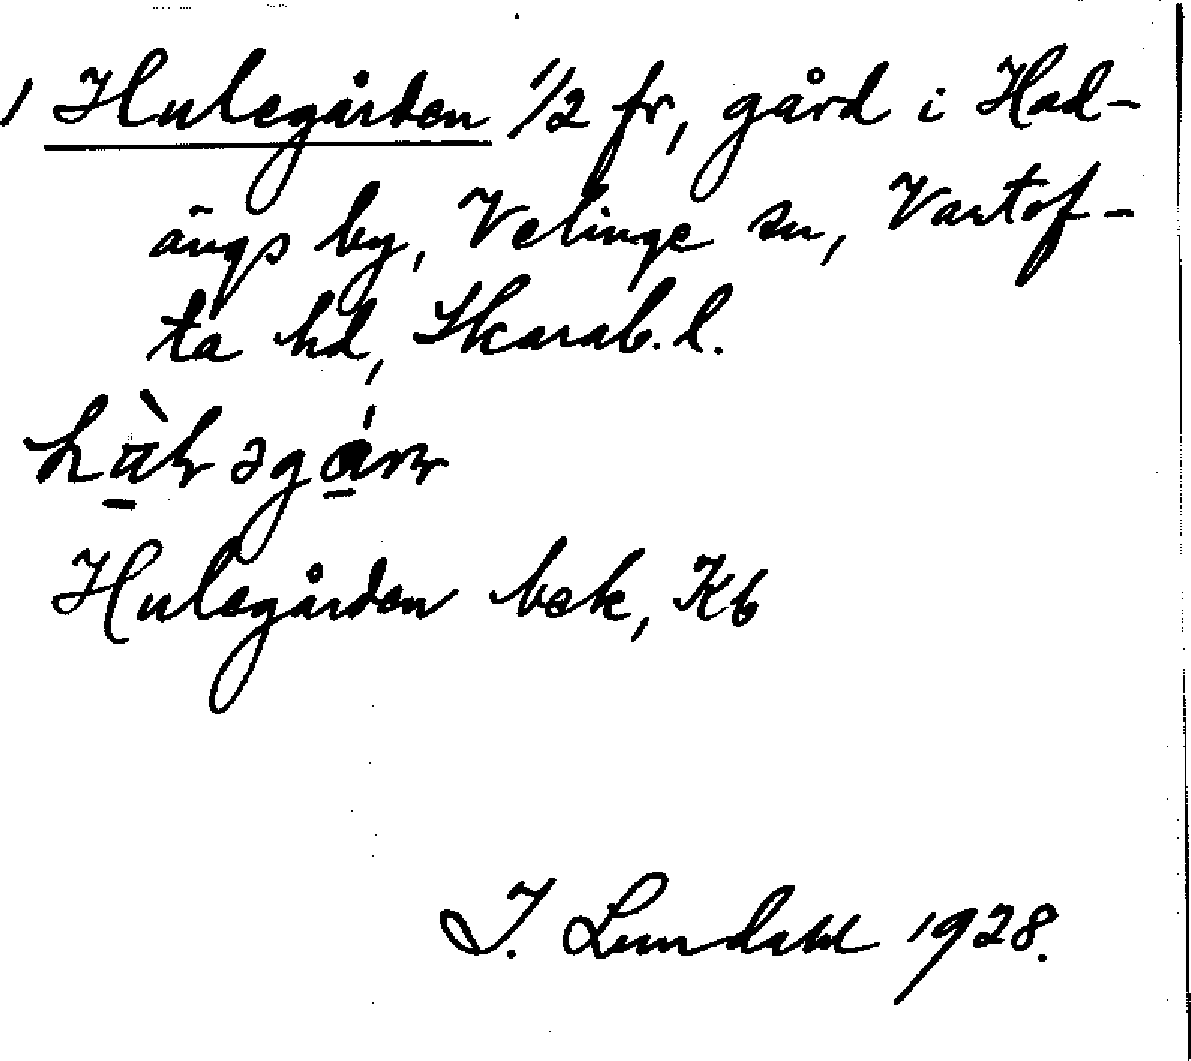 1 Hulegården 1/2 fr, gård i Had-
ängs by, Velinge sn, Vartof-
ta hd, Skarab. l.
Hulegården bek, Kb
I. Lundahl 1928.